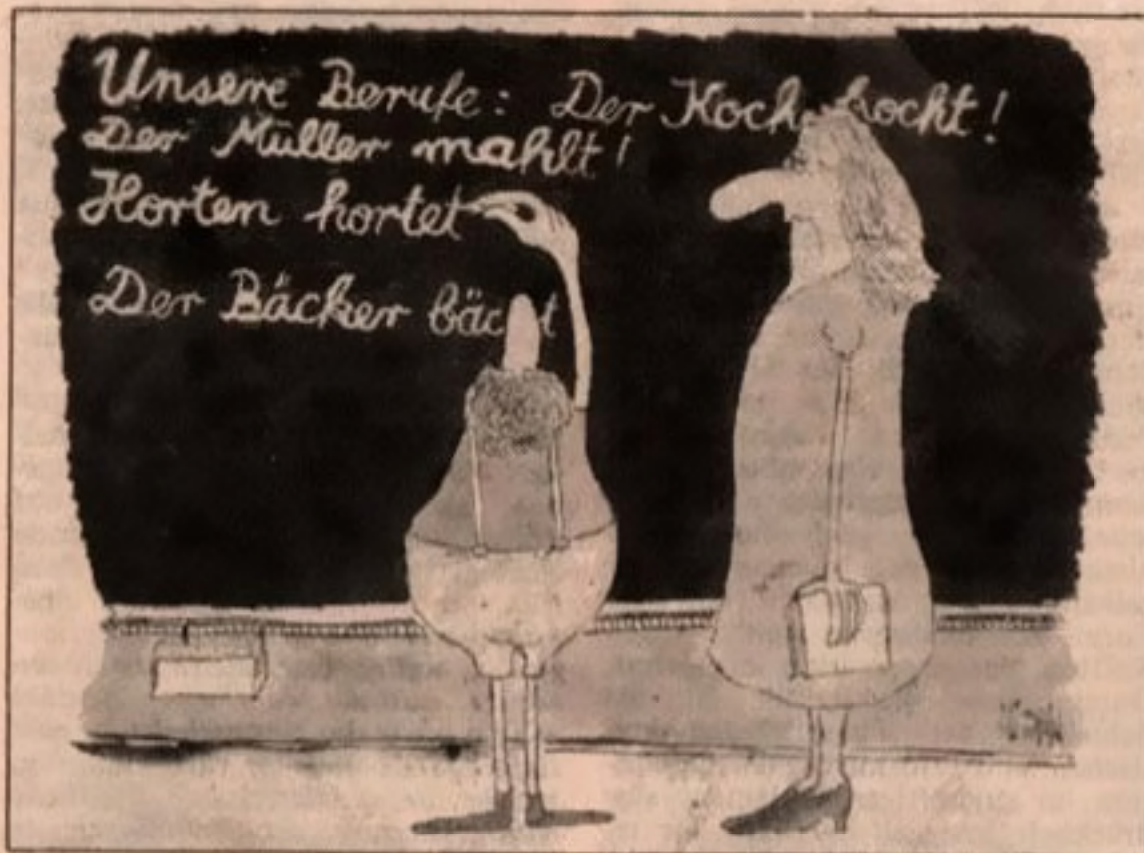 Unsere Berufe: Der Koch kocht!
Der Müller mahlt!
Horten hortet
Der Bäcker bäckt